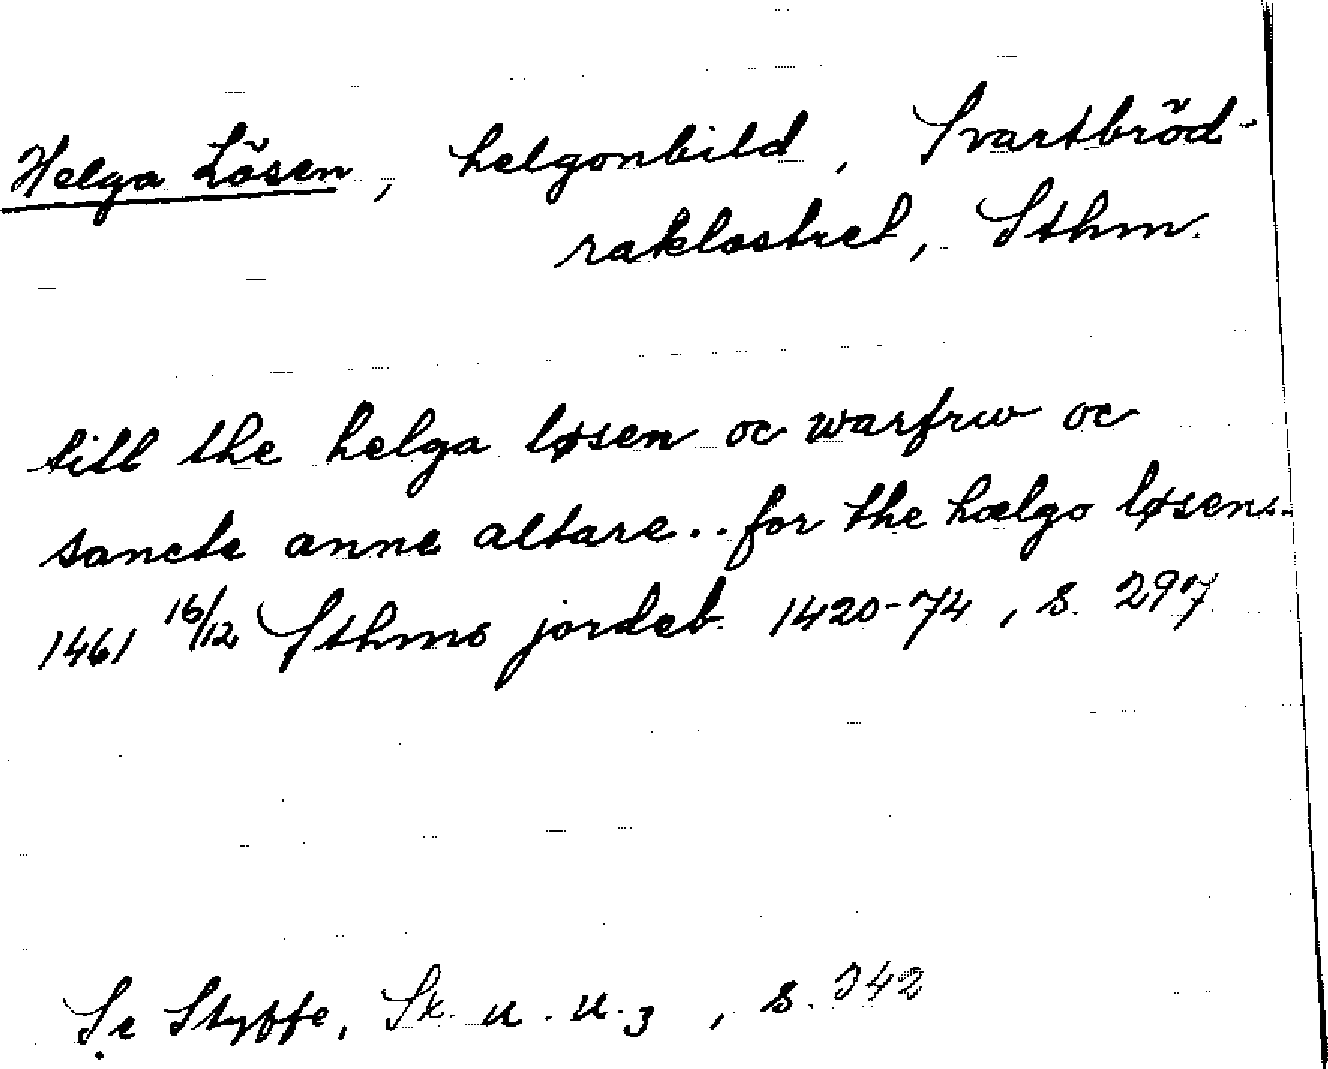 Helga Lösen, helgonbild, Svartbröd-
raklostret, Sthm.
till the helga løsen oc warfrw oc
sancte anne altare..for the hælgo løsens.
1461 16/12 Sthms jordeb. 1420-74, s. 297
Se Styffe, Sk. u. u. 3, s. 342